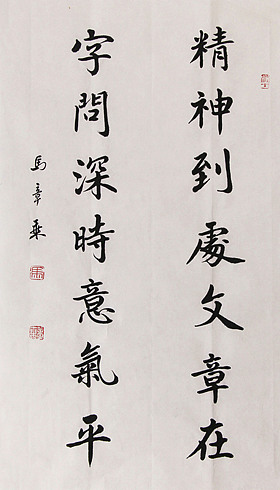 精神到處文章在
字問深時意氣平
馬章乘